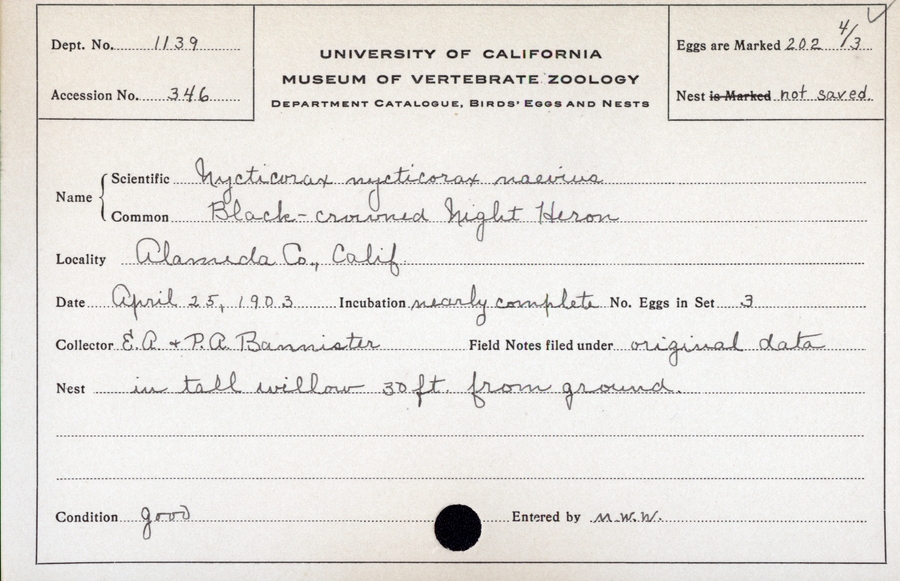 Dept. No. 1139
Accession No. 346
UNIVERSITY OF CALIFORNIA
MUSEUM OF VERTEBRATE ZOOLOGY
DEPARTMENT CATALOGUE, BIRDS' EGGS AND NESTS
Eggs are Marked 202 4/3
Nest is Marked not saved.
Name
Scientific Nycticorax nycticorax naevius
Common Black-crowned Night Heron
Locality Alameda Co., Calif.
Date April 25, 1903 Incubation nearly complete No. Eggs in Set 3
Collector E.A. + P.A. Bannister Field Notes filed under original data
Nest in tall willow 30 ft. from ground.
Condition good Entered by M.W.W.